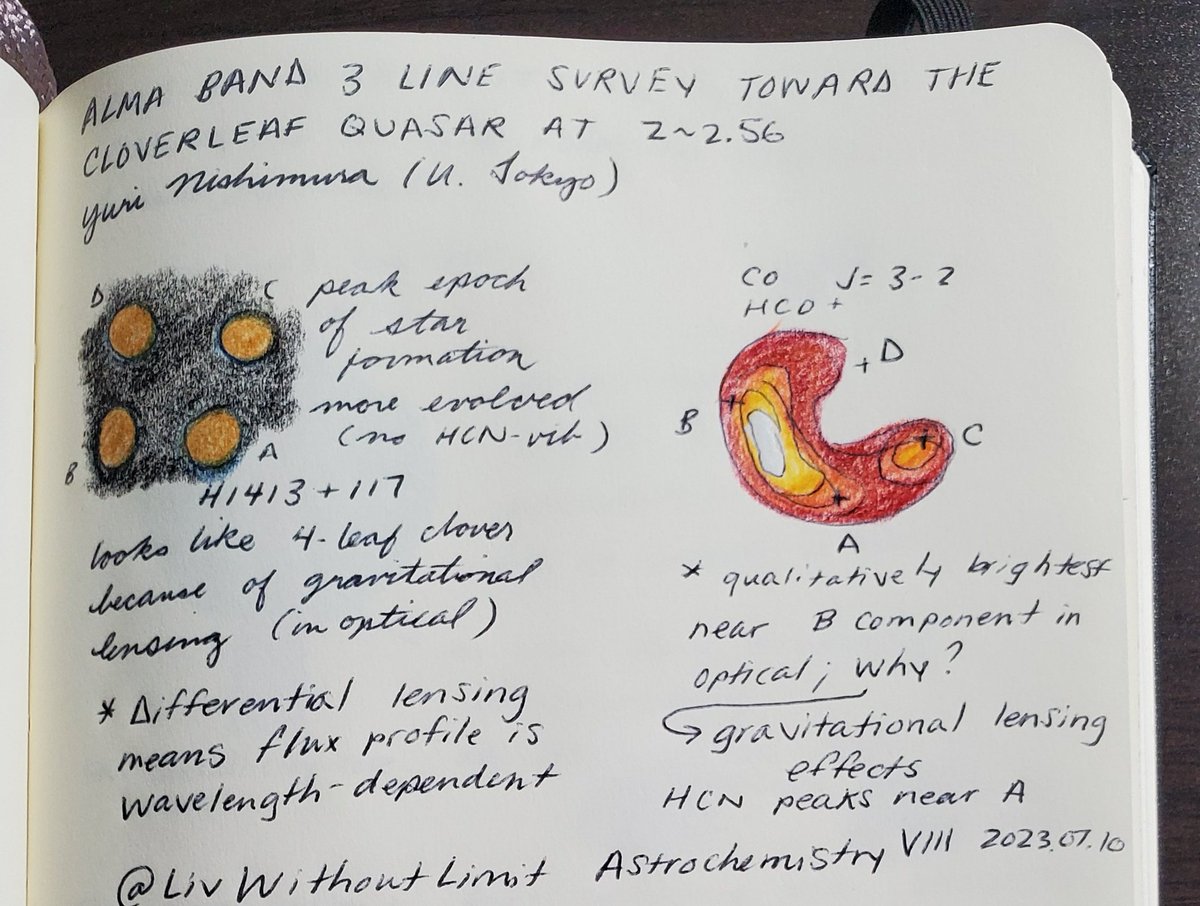 ALMA BAND 3 LINE SURVEY TOWARD THE
CLOVERLEAF QUASAR AT Z~2.56
Yuri Nishimura (U. Tokyo)
D
C
peak epoch
of star
formation
more evolved
(no HCN-vib)
B
A
H1413+117
looks like 4-leaf clover
because of gravitational
lensing (in optical)
* Differential lensing
means flux profile is
wavelength-dependent
CO J=3-2
HCO+
+ D
B
C
A
* qualitatively brightest
near B component in
optical; why?
gravitational lensing
effects
HCN peaks near A
@LivWithoutLimit Astrochemistry VIII 2023.07.10